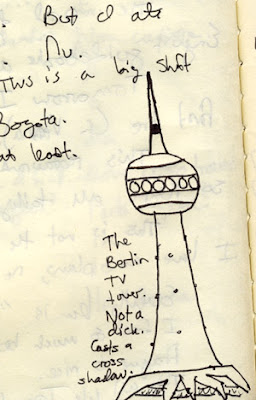 But I ate
. Nu.
This is a big shift
Bogota.
at least.
The
Berlin
TV
tower.
Not a
dick.
Casts a
cross
shadow.